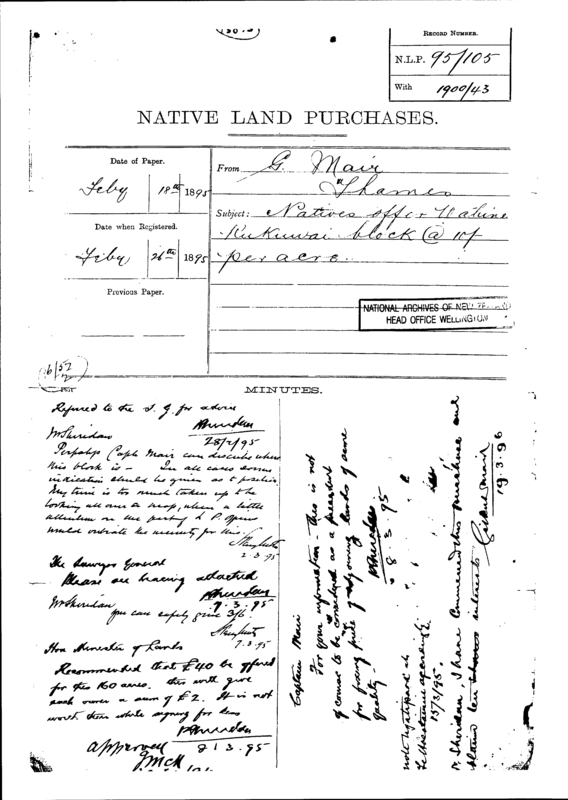 RECORD NUMBER.
N.L.P. 95/105
With 1900/43
NATIVE LAND PURCHASES.
Date of Paper.
Feby 18th 1895
Date when Registered.
Feby 26th 1895
Previous Paper.
From G. Mair
Thames
Subject: Natives offer Wahine
Rukuwai block @ 10/
per acre.
NATIONAL ARCHIVES OF NEW ZEALAND
HEAD OFFICE WELLINGTON
MINUTES.
Referred to the S. G. for advice
PSheridan
28/2/95
Mr Sheridan
Perhaps Capt Mair can describe where
this block is – In all cases some
indication should be given as to position
My time is too much taken up to be
looking all over a map, when a little
attention on the part of L. P. Officers
would obviate the necessity for this
2.3.95
The Surveyor General
Please see tracing attached
PSheridan
7.3.95
Mr Sheridan
you can safely give 3/6
7.3.95
Hon Minister of Lands
Recommended that £40 be offered
for the 160 acres. this will give
each owner a sum of £2. It is not
worth their while signing for less
PSheridan
8/3.95
Approved
JMcK
Captain Mair
For your information – this is not
of course to be considered as a precedent
for fixing price of adjoining lands of same
quality
PSheridan
8.3.95
15/3/95.
Mr Sheridan, I have commenced this purchase and
obtained ten interests
Gilbert Mair
19.3.96